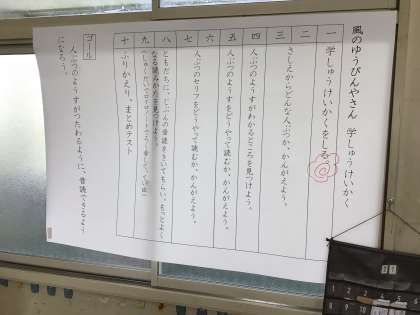 風のゆうびんやさん 学しゅうけいかく
一 学しゅうけいかくをしる。
二
三 さしえからどんな人ぶつか、かんがえよう。
四 人ぶつのようすがわかるところを見つけよう。
五 人ぶつのようすをどうやって読むか、かんがえよう。
六
七 人ぶつのセリフをどうやって読むか、かんがえよう。
八 ともだちに、じぶんの音読をきいてもらい、もっとよくなる読みかたを見つけよう。
九
十 ふりかえり、まとめテスト
ゴール
人ぶつのようすがつたわるように、音読できるようになろう。